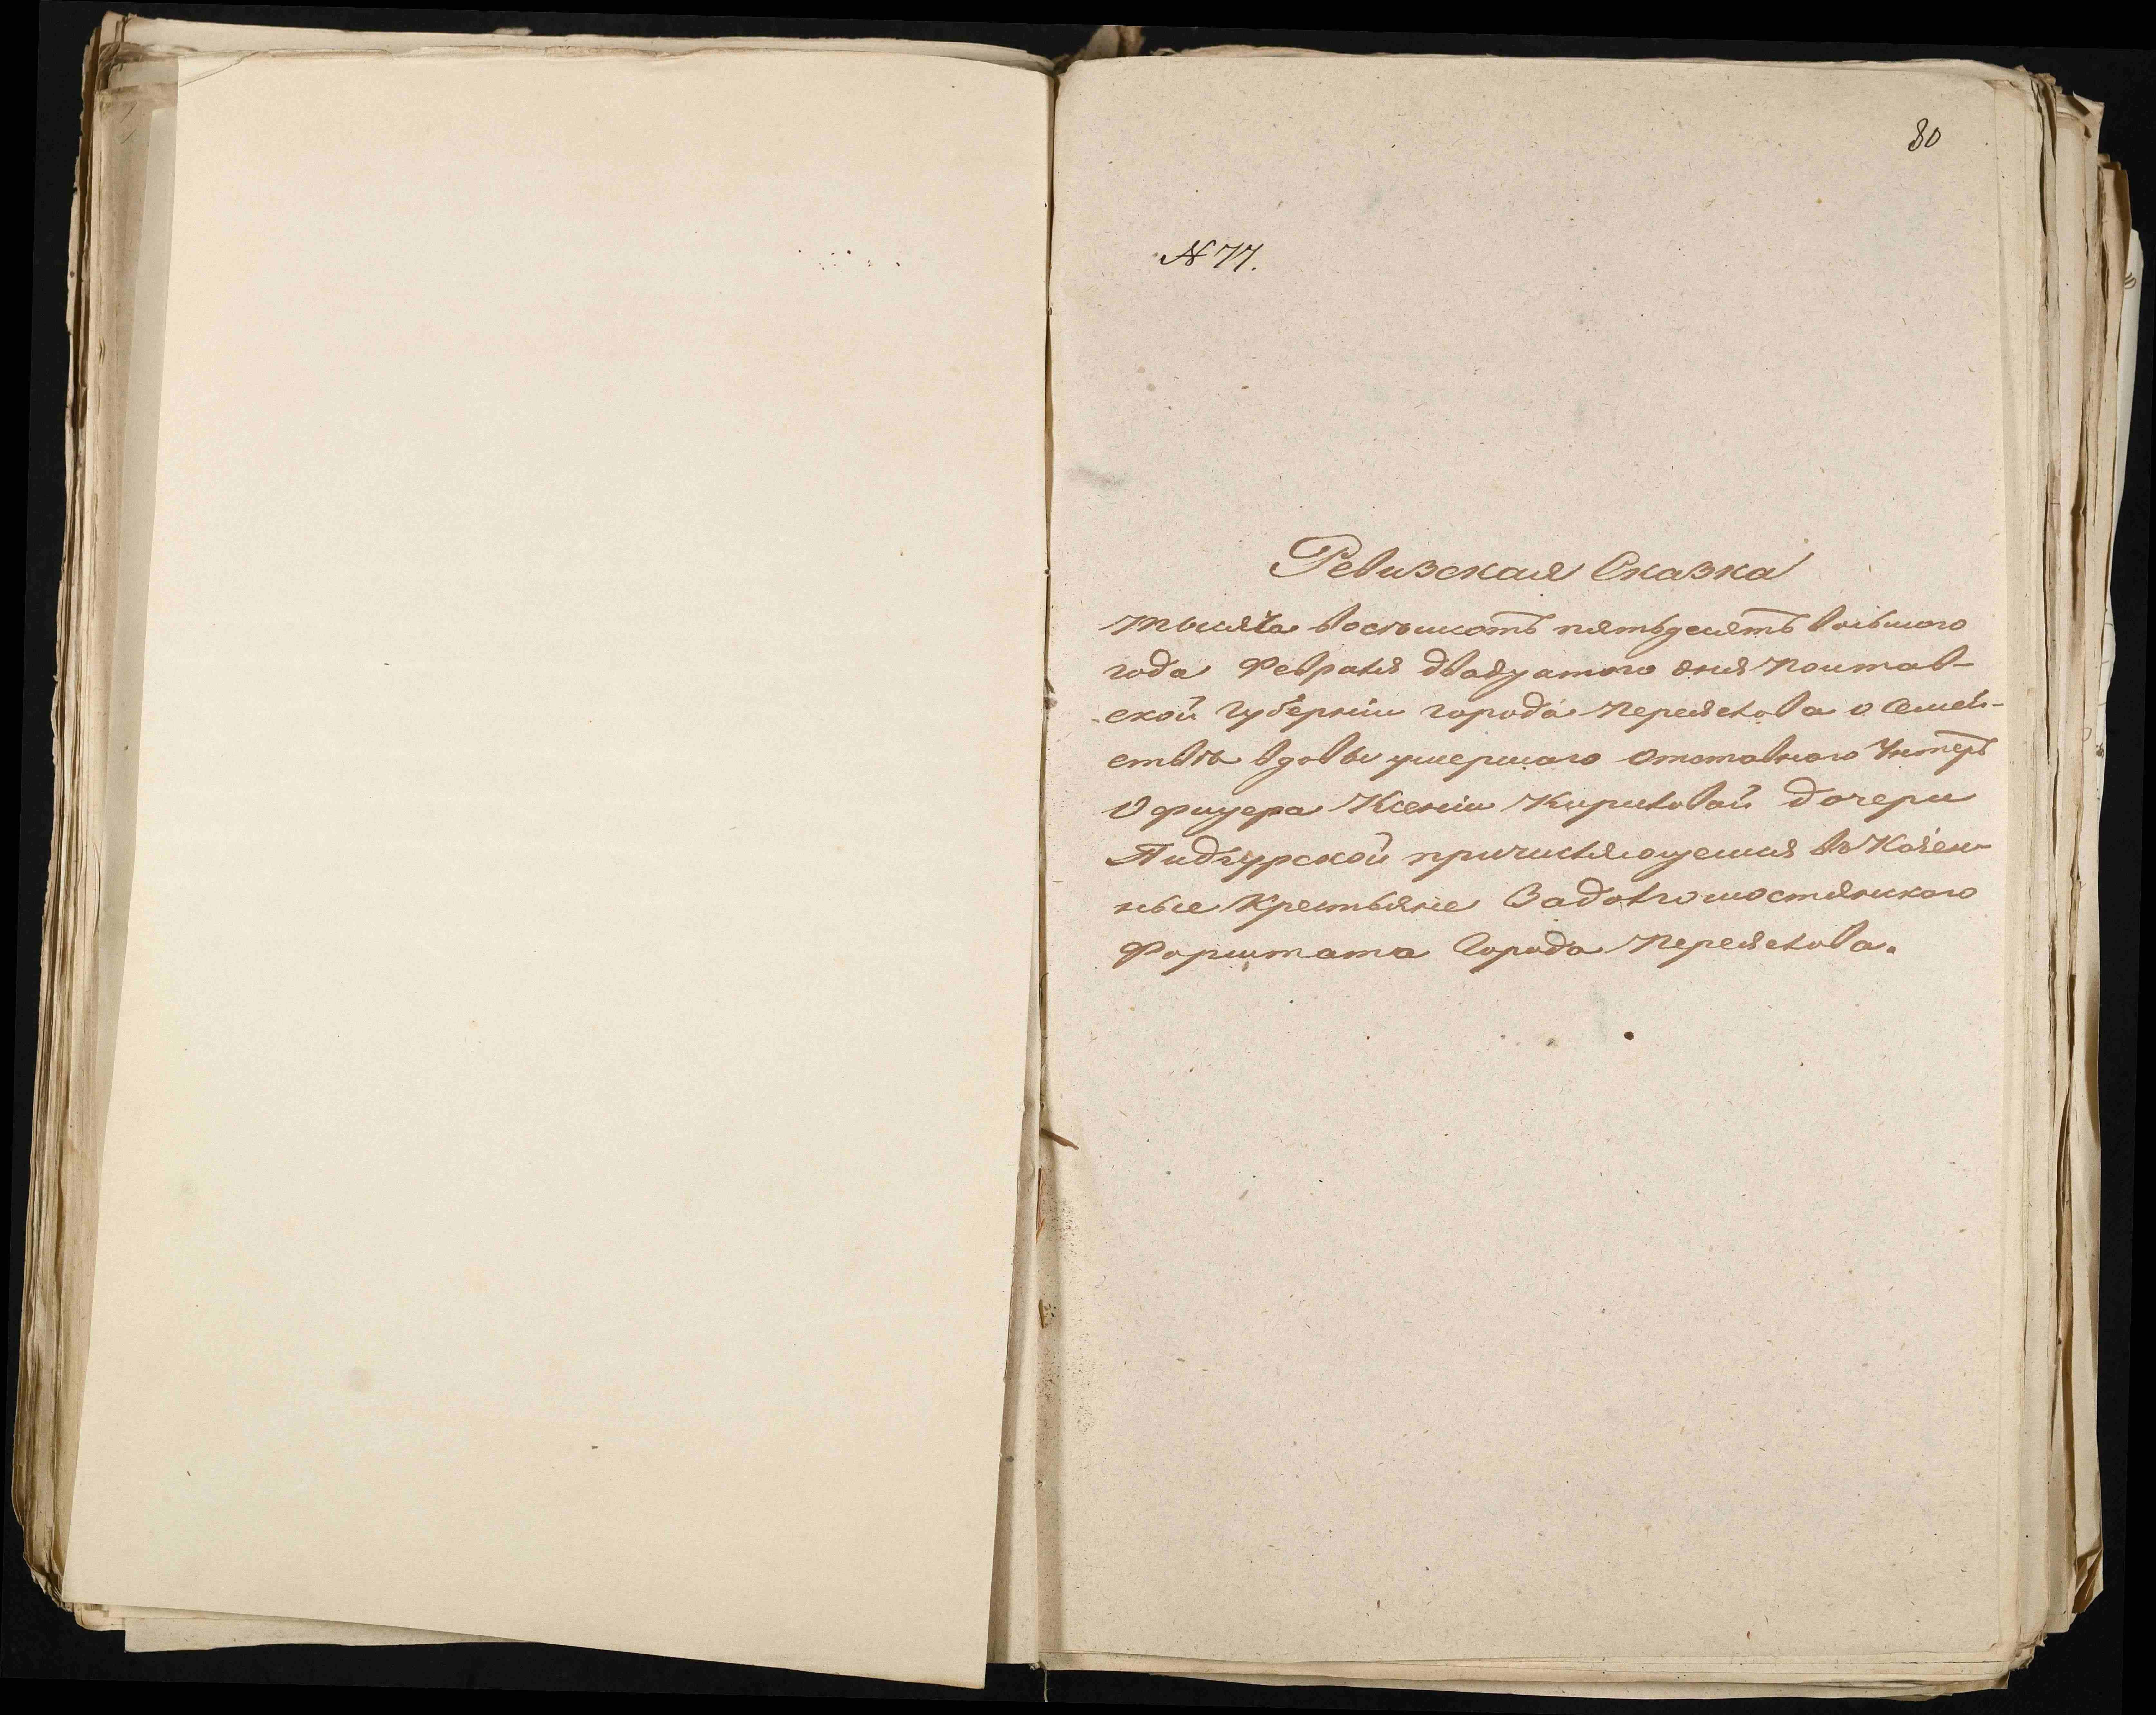 80
№ 77.
Ревизская Сказка
тысяча восемьсотъ пятьдесятъ восьмого
года Февраля двадцатого дня Полтав-
ской Губерніи города Переяслова о Семей-
ствѣ вдовы умершаго отставного Унтеръ
Офицера Ксеніи Кириловой дочери
Пидгурской причисляющемся въ Казен-
ные Крестьяне Задолгомостянского
Форштата Города Переяслова.